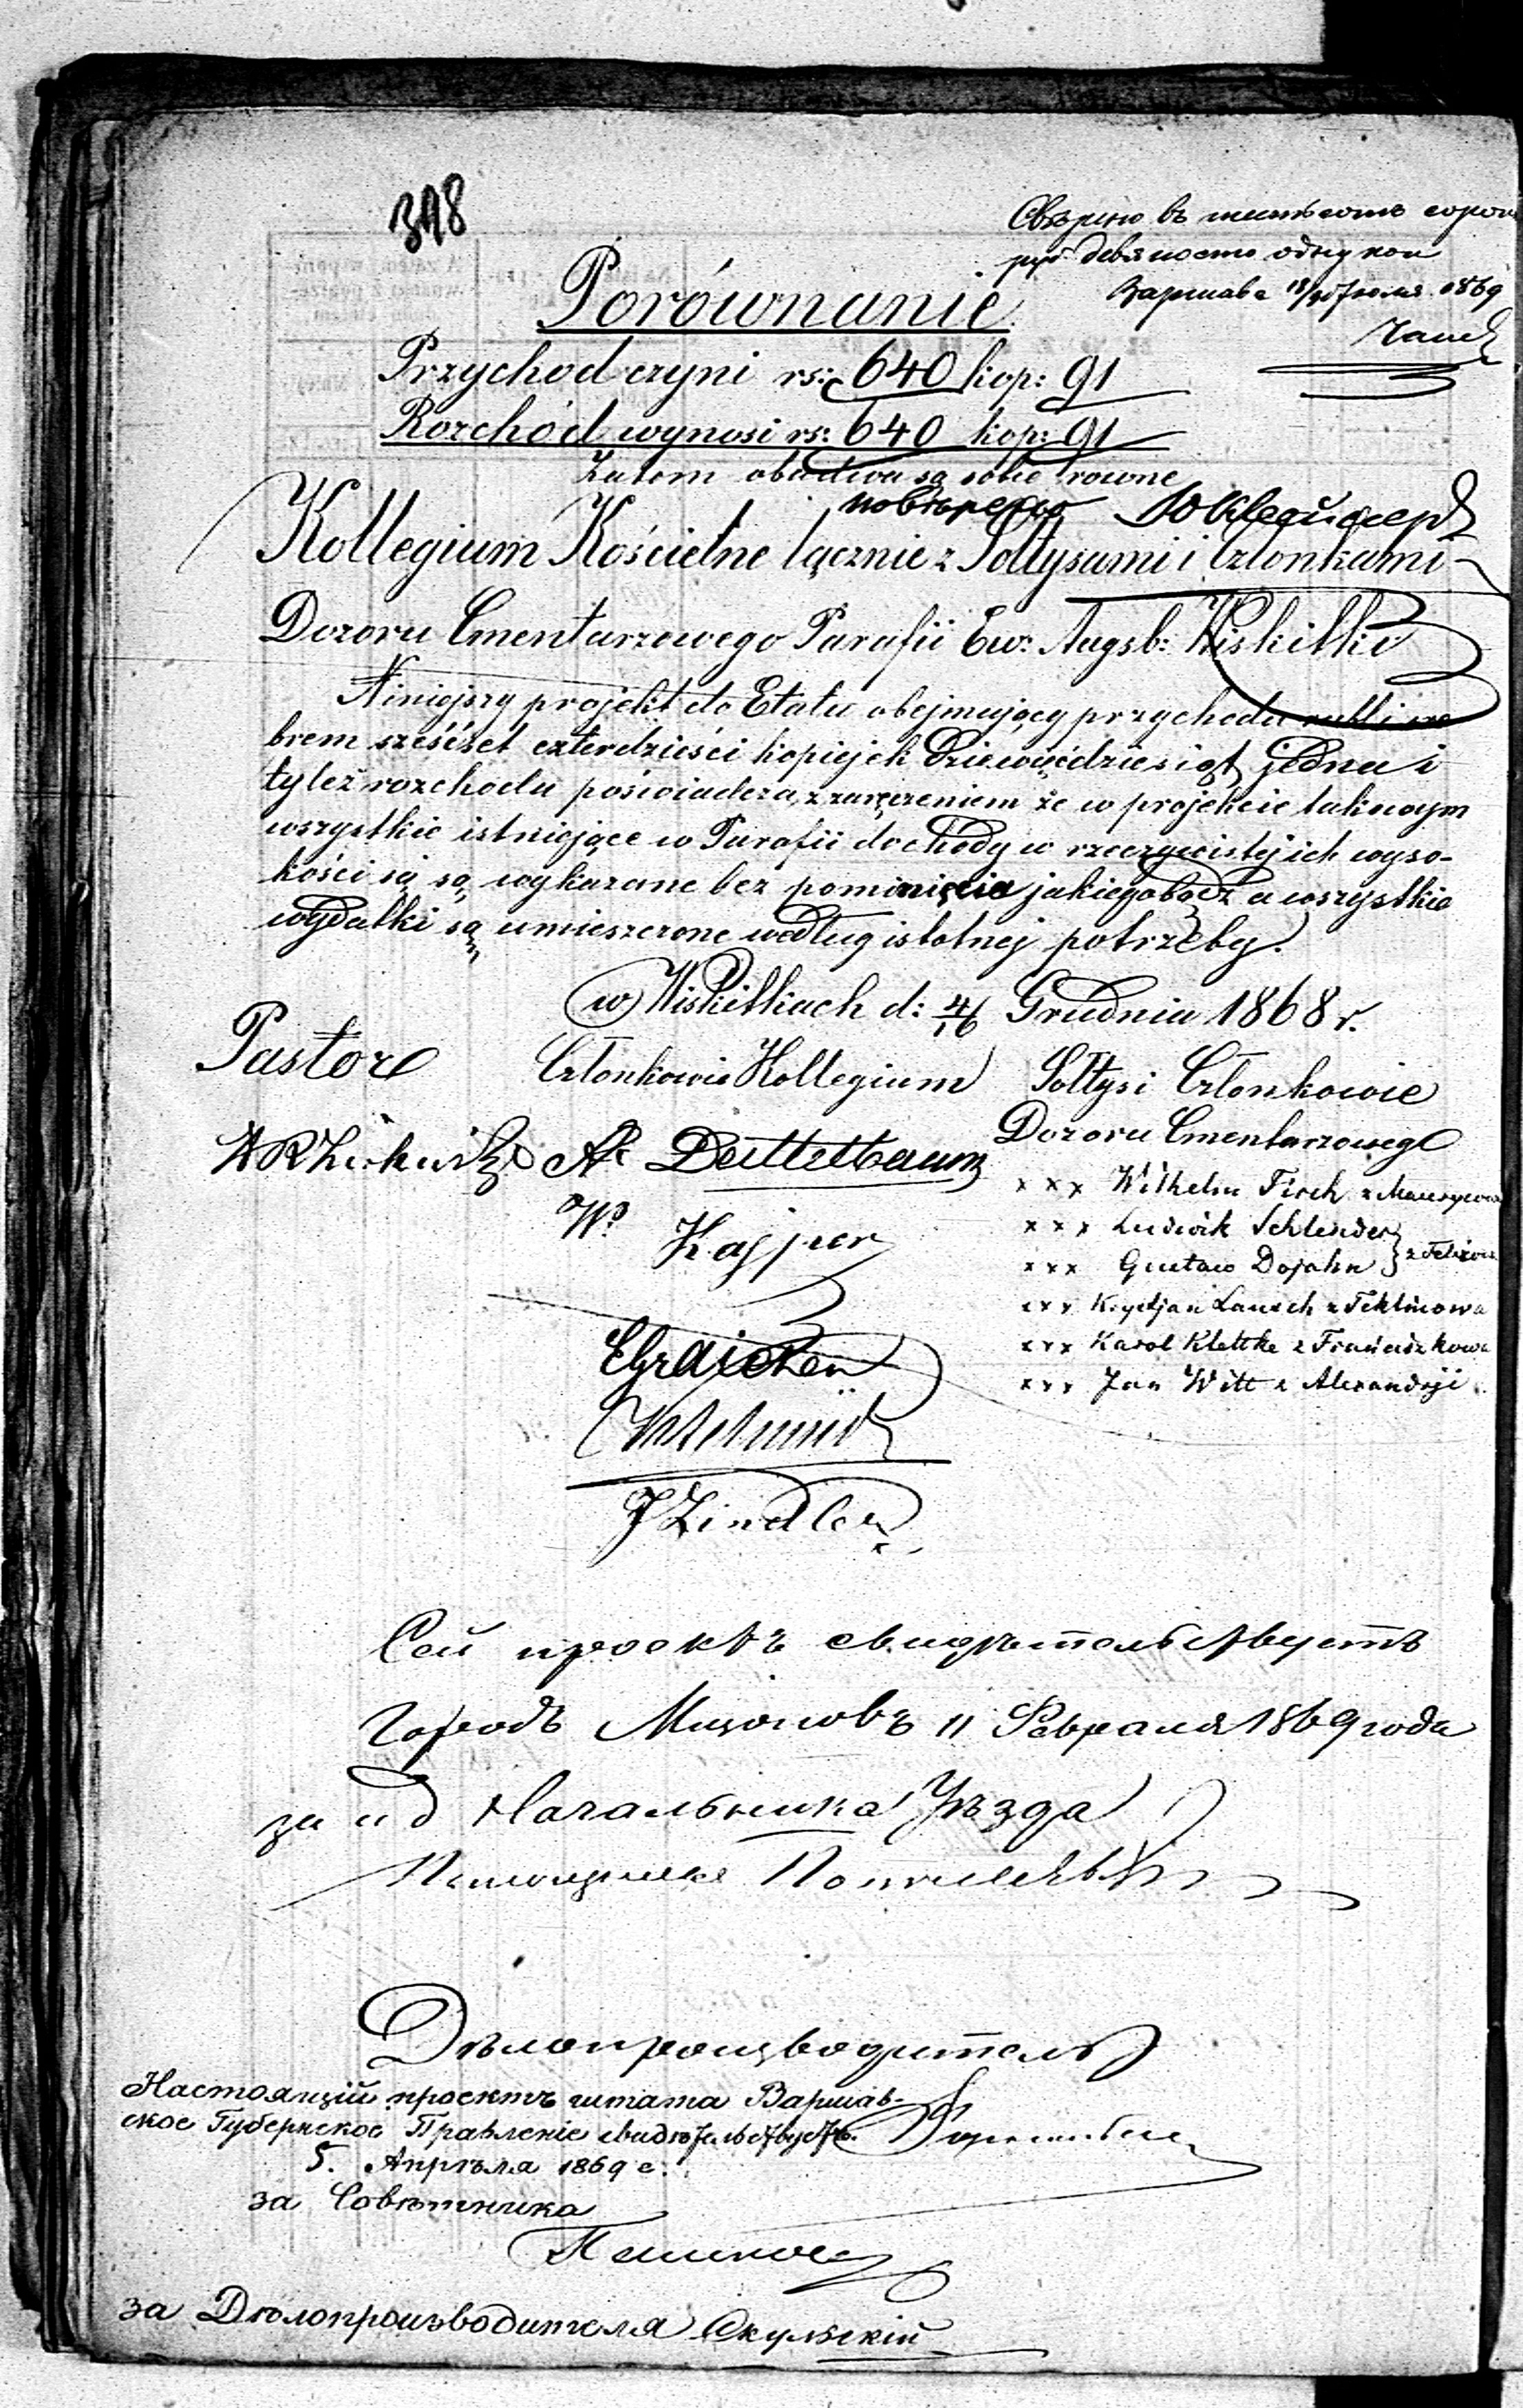 348
Свѣрено въ шестьсотъ сорокъ
руб девяносто одну коп
Варшава 18/30 Іюля 1869
Porównanie
Przychod czyni rs: 640 kop: 91
Rozchód wynosi rs: 640 kop: 91
Zatem obadwa są sobie rowne
повѣрено
Kollegium Kościelne łącznie z Sołtysami i Członkami
Dozoru Cmentarzowego Parafii Ew: Augsb: Wiskitki
Niniejszy projekt do Etatu obejmujący przychodu rubli sre
brem sześćset czterdzieści kopiejek dziewięćdziesiąt jedna i
tyleż rozchodu poświadcza, z zaręczeniem że w projekcie takowym
wszystkie istniejące w Parafii dochody w rzeczywistej ich wyso-
kości są są wykazane bez pominięcia jakiegobądź a wszystkie
wydatki są umieszczone według istotnej potrzeby.
w Wiskitkach d: 4/16 Grudnia 1868 r.
Pastor
Członkowie Kollegium
Sołtysi Członkowie
Dozoru Cmentarzowego
A. Deutelbaum
W. Kasjper
EGraichen
Schmid
J Zindler
xxx Wilhelm Firch z
xxx Ludwik Schlender
xxx Gustaw Dojahn
xxx Krystjan Lausch z Teklinowa
xxx Karol Klettke z Franciszkowa
xxx Jan Witt z Alexandrji
Сей проектъ свидѣтельствуетъ
Городъ Мщоновъ 11 Февраля 1869 года
за и д Начальника Уѣзда
Помощникъ
Дѣлопроизводитель
Настоящій проектъ штата Варшав-
ское Губернское Правленіе свидѣтельствуетъ.
5. Апрѣля 1869 г.
за Совѣтника
за Дѣлопроизводителя Скульскій